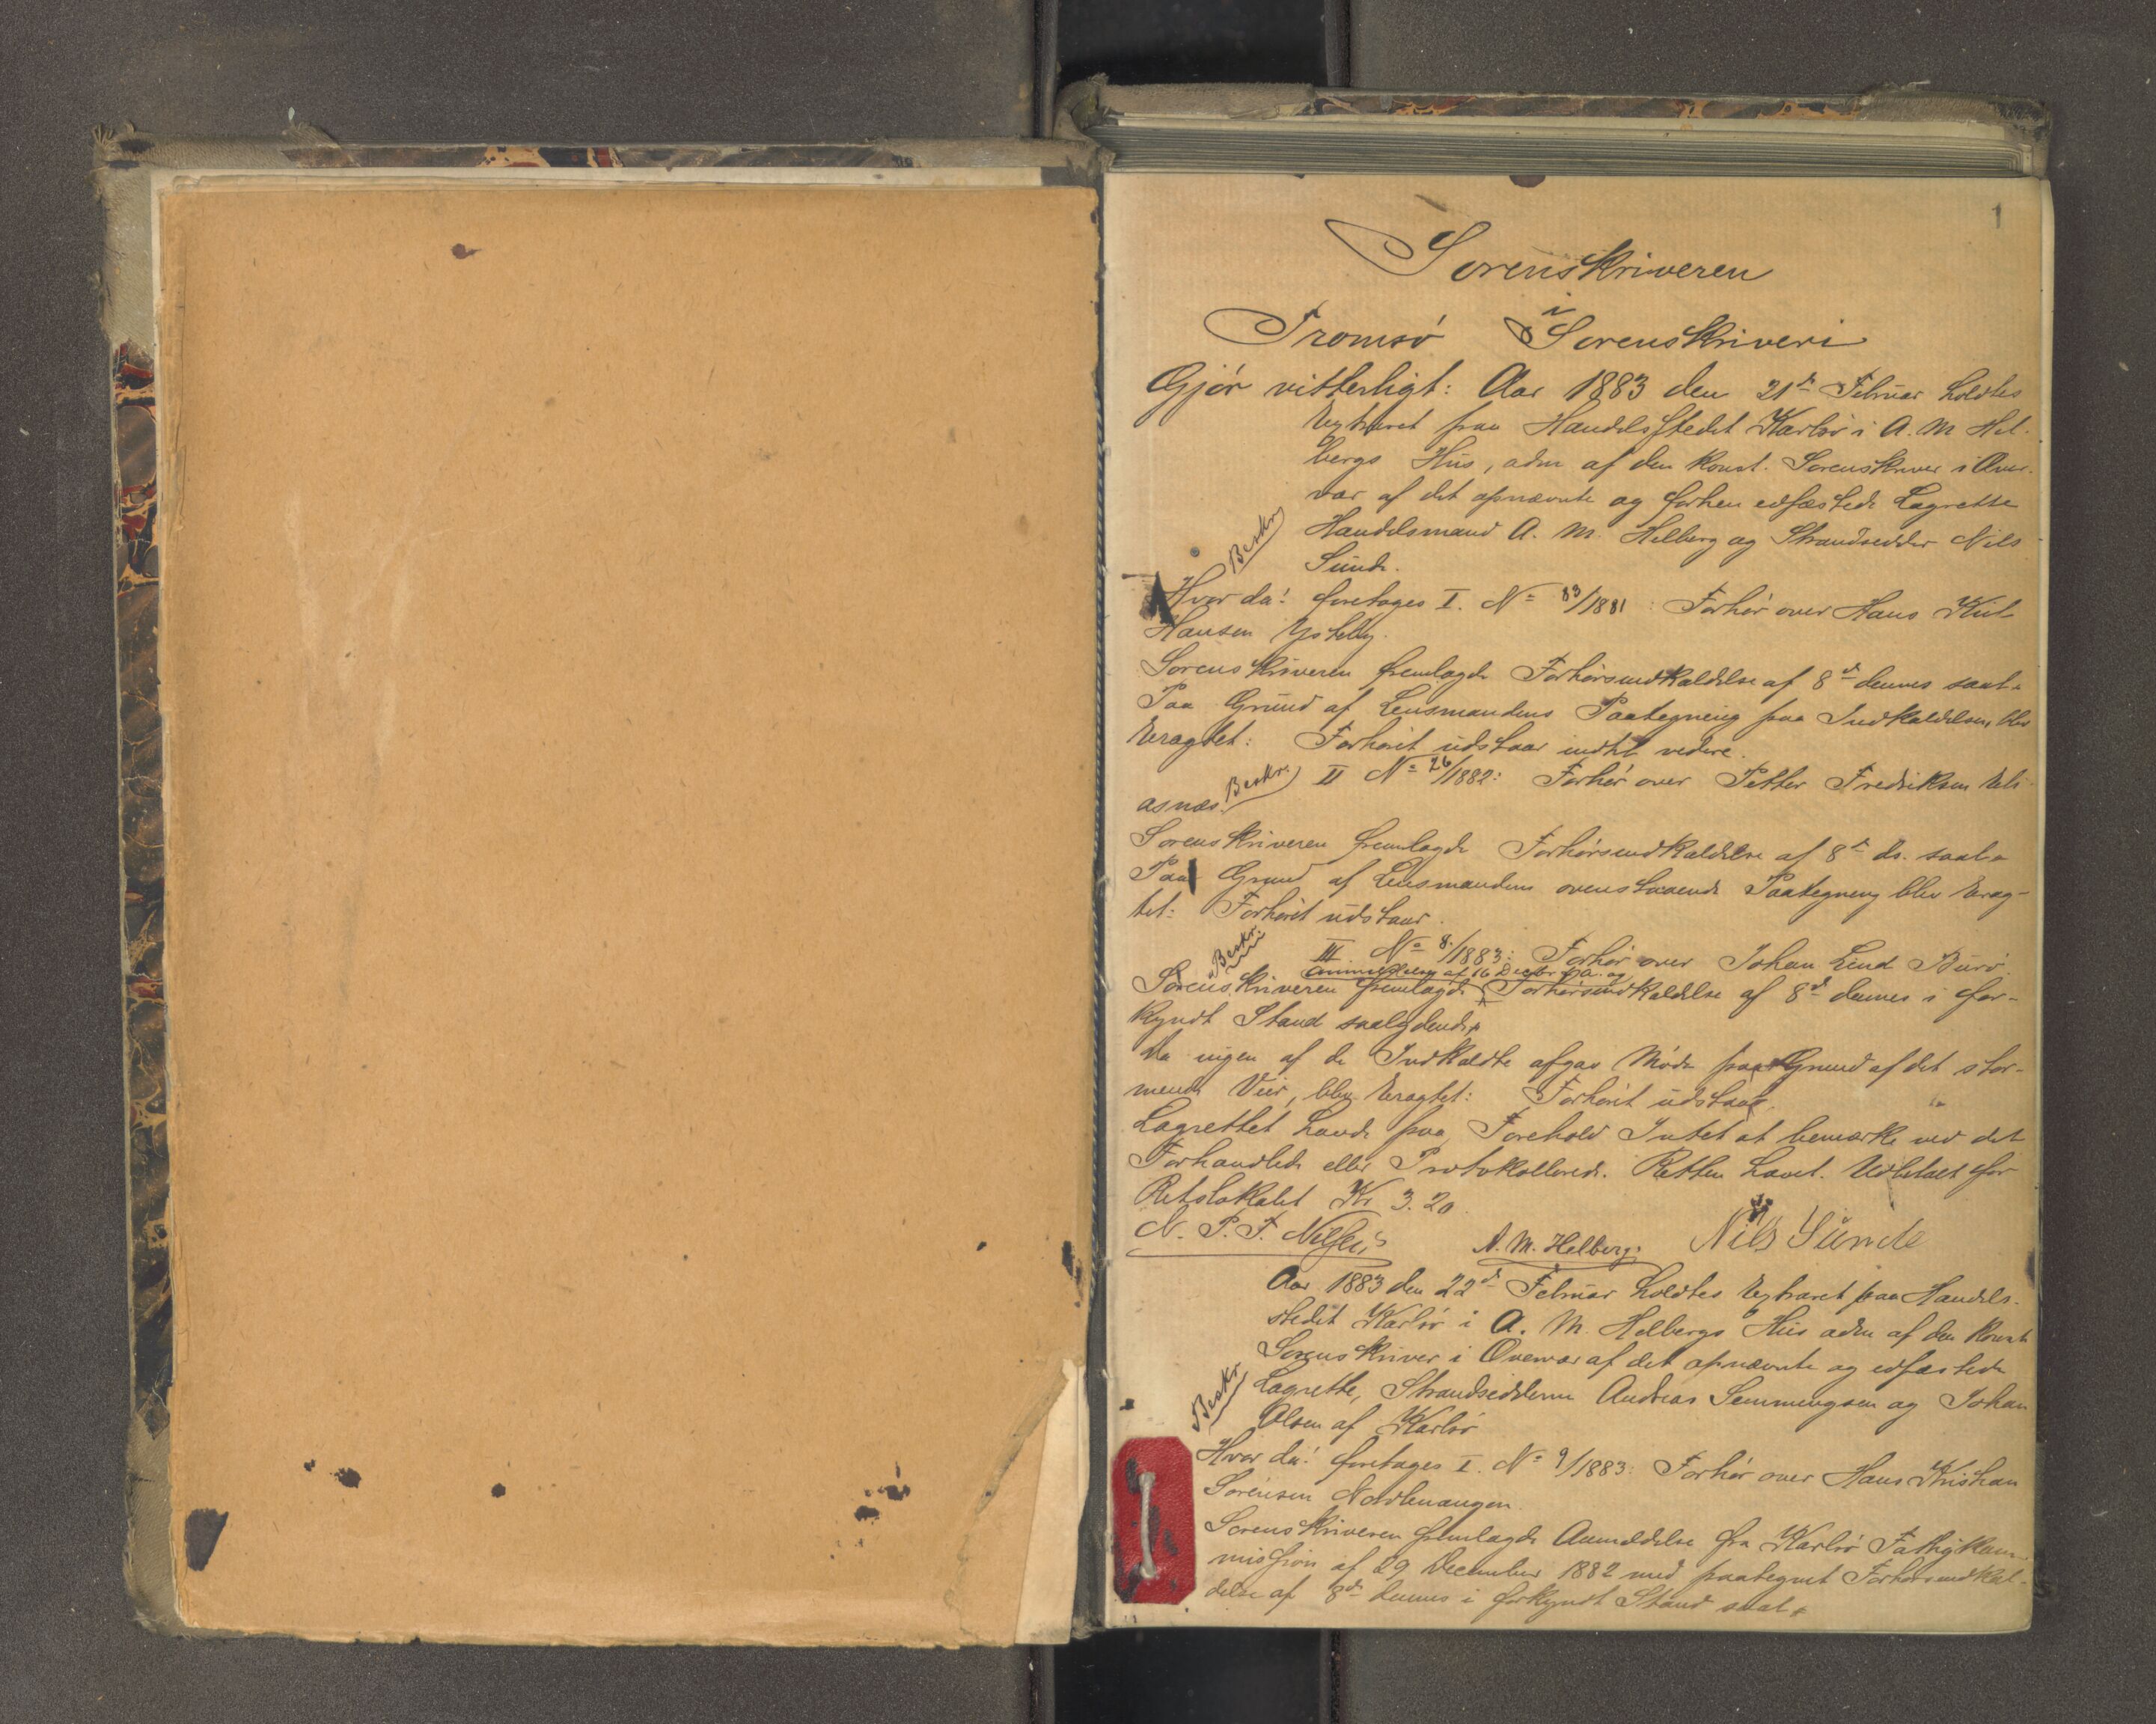 1
Sorenskriveren
i
Tromsø Sorenskriveri
Gjør vitterligt: Aar 1883 den 21de Februar holdtes
Extraret paa Handelsstedet Karlsø i A. M. Hel-
bergs Hus, adm af den konst. Sorenskriver i Over-
vær af det opnævnte og forhen edfæstede Lagrette
Handelsmand A. M. Helberg og Strandsidder Nils
Sunde.
Beskr
Hvor da! foretages I. No 83/1881: Forhør over Hans
Hansen
Sorenskriveren fremlagde Forhørsindkaldelse af 8de dennes saal.
Paa Grund af Lensmandens Paategning paa Indkaldelsen blev
Eragtet: Forhøret udstaar indtil videre.
Beskr. II No 26/1882: Forhør over Petter Fredriksen Eli-
asnæs.
Sorenskriveren fremlagde Forhørsindkaldelse af 8de ds. saal.
Paa Grund af Lensmandens ovenstaaende Paategning blev Erag-
tet: Forhøret udstaar.
Beskr. III. No 8/1883: Forhør over Johan Lind Burø.
Anmeldelse af 16 Decbr f. A. og
Sorenskriveren fremlagde Forhørsindkaldelse af 8de dennes i for-
kyndt Stand saalydende
Da ingen af de Indkaldte afgav Møde paa Grund af det stor-
mende Veir, blev Eragtet: Forhøret udstaar.
Lagrettet havde paa Forehold Intet at bemærke ved det
Forhandlede eller Protokollerede. Retten hævet. Udbetalt for
Retslokalet Kr 3.20.
N. P. F. A. M. Helberg. Nils Sunde
Aar 1883 den 22de Februar holdtes Extraret paa Handels-
stedet Karlsø i A. M. Helbergs Hus adm af den konst
Sorenskriver i Overvær af det opnævnte og edfæstede
Beskr
Lagrette, Strandsidderne Andreas Semmingsen og Johan
Olsen af Karlsø
Hvor da! foretages I. No 9/1883: Forhør over Hans Kristian
Sørensen Nordlenangen.
Sorenskriveren fremlagde Anmeldelse fra Karlsø Fattigkom-
mission af 29 December 1882 med paategnet Forhørsindkal-
delse af 8de dennes i forkyndt Stand saal.